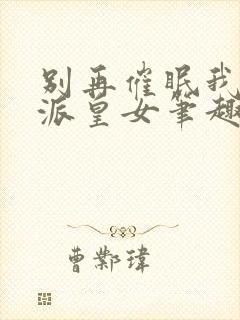 别再催眠我
派皇女笔趣
曹鄴瑋